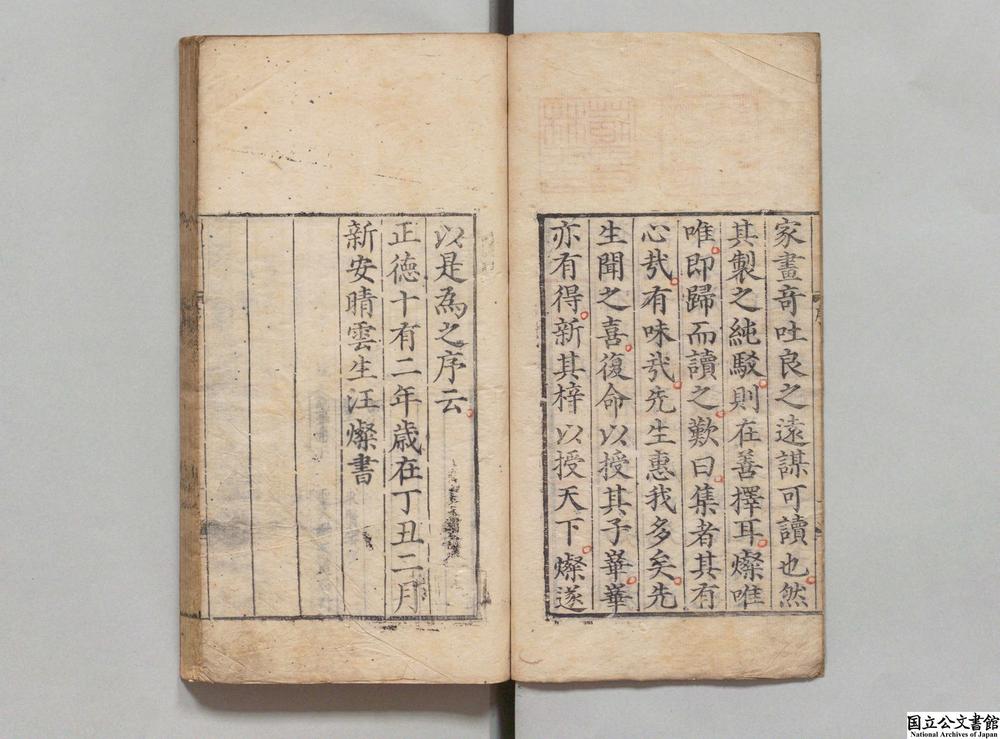 家畫奇吐良之遠謀可讀也然
其製之純駁則在善擇耳燦唯
唯即歸而讀之歎曰集者其有
心㢤有味㢤先生惠我多矣先
生聞之喜復命以授其子華華
亦有得新其梓以授天下燦遂
以是為之序云
正德十有二年歳在丁丑二月
新安晴雲生汪燦書
国立公文書館
National Archives of Japan